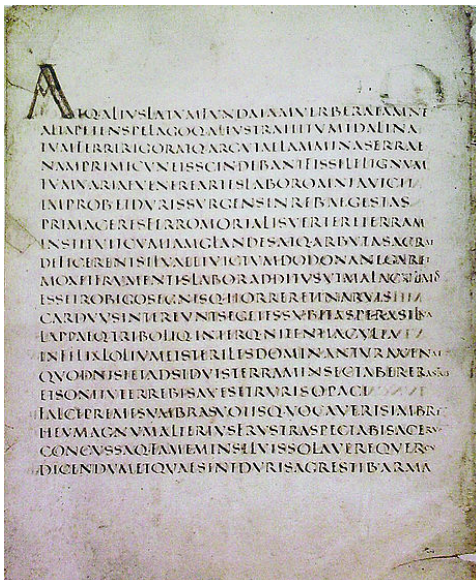 ATQ·ALIVSLATVMFVNDAIAMVERBERATAMNE
ALTAPETENSPELAGOQ·ALIVSTRAHITVMIDALINA
TVMFERRIRIGORATQ·ARGVTAELAMMINASERRAE
NAMPRIMICVNEISSCINDEBANTFISSILELIGNVM
TVMVARIAEVENEREARTESLABOROMNIAVICIT
IMPROBETDVRISSVRGENSINREBAEGESTAS
PRIMACERESFERROMORTALISVERTERETERRAM
INSTITVITCVMIAMGLANDESATQ·ARBVTASACRAE
DEFICERENTSILVAEETVICTVMDODONANEGARET
MOXETFRVMENTISLABORADDITVSVTMALACVLMOS
ESSETROBIGOSEGNISQ·HORRERETINARVIS
CARDVVSINTEREVNTSEGETESSVBITASPERASILVA
LAPPAEQ·TRIBOLIQ·INTERQ·NITENTIACVLTA
INFELIXLOLIVMETSTERILESDOMINANTVRAVENAE
QVODNISIETADSIDVISTERRAMINSECTABERERASTRIS
ETSONITVTERREBISAVESETRVRISOPACI
FALCEPREMESVMBRASVOTISQ·VOCAVERISIMBRE
HEVMAGNVMALTERIVSFRVSTRASPECTABISACERV
CONCVSSAQ·FAMEMINSILVISSOLAVEREQVERCV
DICENDVMETQVAESINTDVRISAGRESTIBARMA